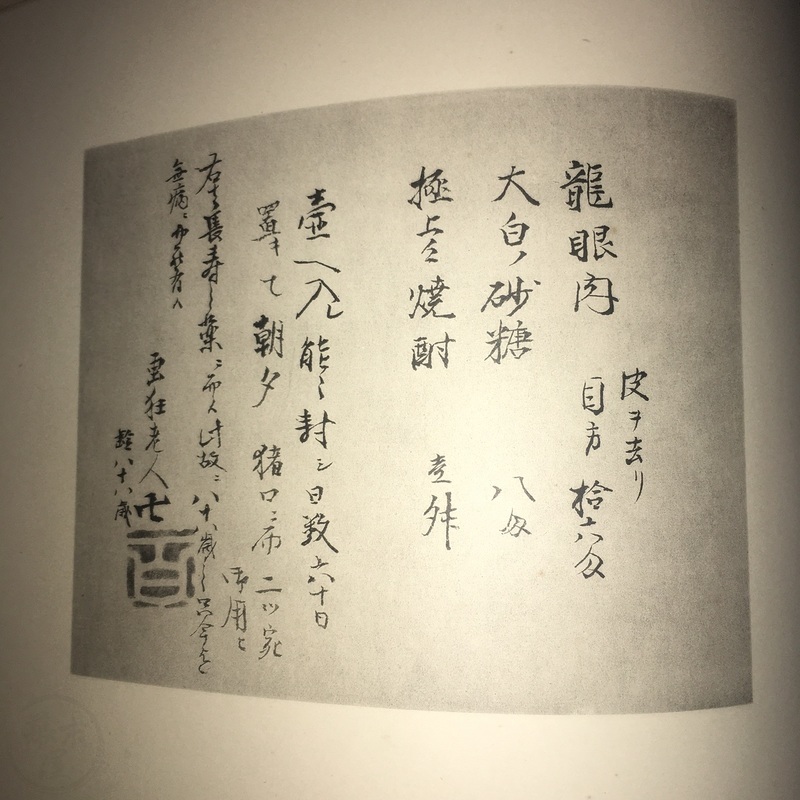 皮ヲ去り
龍眼肉 目方 拾六匁
大白ノ砂糖 八匁
極上々焼酎 壱舛
壷へ入レ能々封シ日数六十日
置キて朝夕 猪口ニ而 二ツ宛
御用と
右者長寿之薬ニ而 此故ニ八十八歳 只今
無病ニ
画狂老人卍
齢八十八歳
百